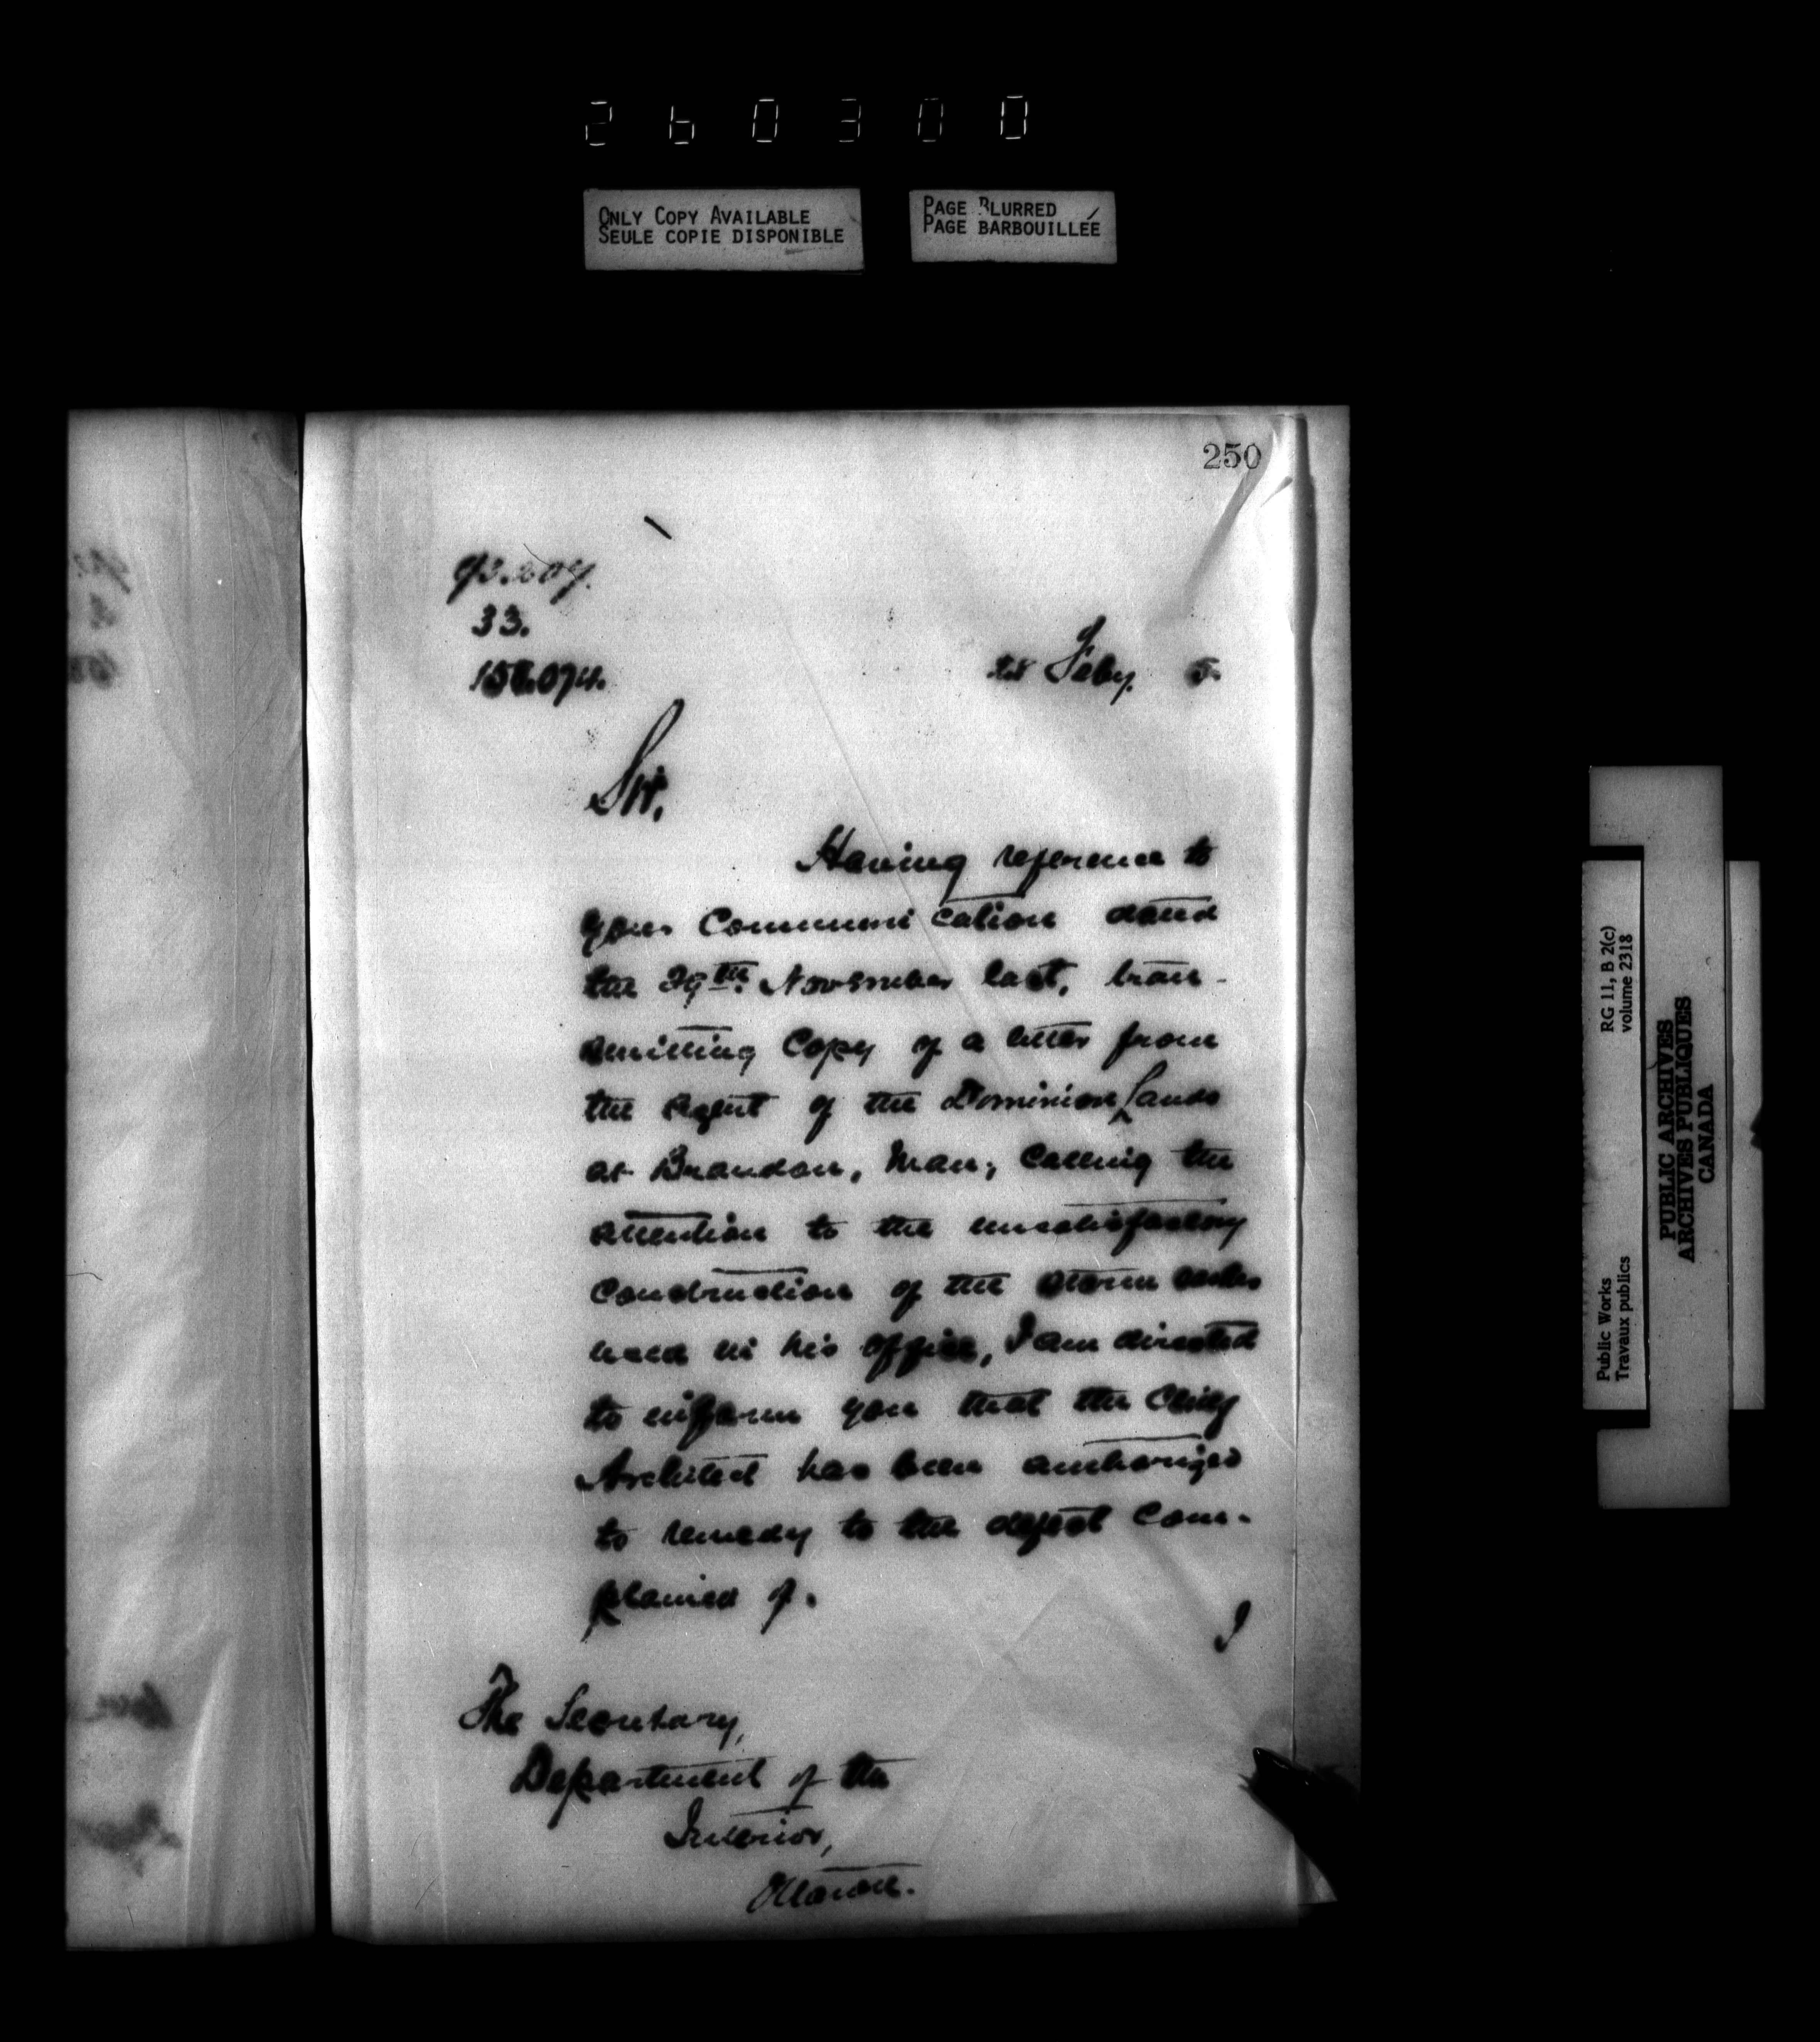 260300
ONLY COPY AVAILABLE
SEULE COPIE DISPONIBLE
PAGE BLURRED
PAGE BARBOUILLÉE
250
33.
Feby. 5
Sir,
Having reference to
your Communication dated
the 29th. November last, trans-
mitting Copy of a letter from
the Agent of the Dominion Lands
at Brandon, Man; Calling the
attention to the unsatisfactory
Construction of the storm sashes
used in his office, I am directed
to inform you that the Chief
Architect has been authorized
to remedy to the defect Com-
plained of.
I
The Secretary,
Department of the
Interior,
Ottawa.
Public Works
Travaux publics
RG 11, B 2(c)
volume 2318
PUBLIC ARCHIVES
ARCHIVES PUBLIQUES
CANADA